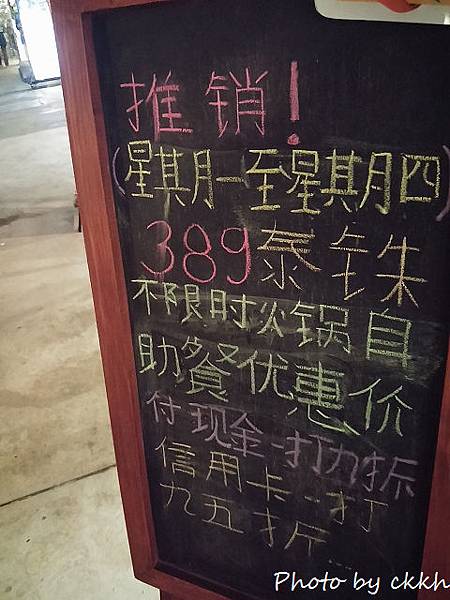 推销!
(星期一至星期四)
389泰铢
不限时火锅自
助餐优惠价
付现金-打九折
信用卡-打
九五折
Photo by ckkh